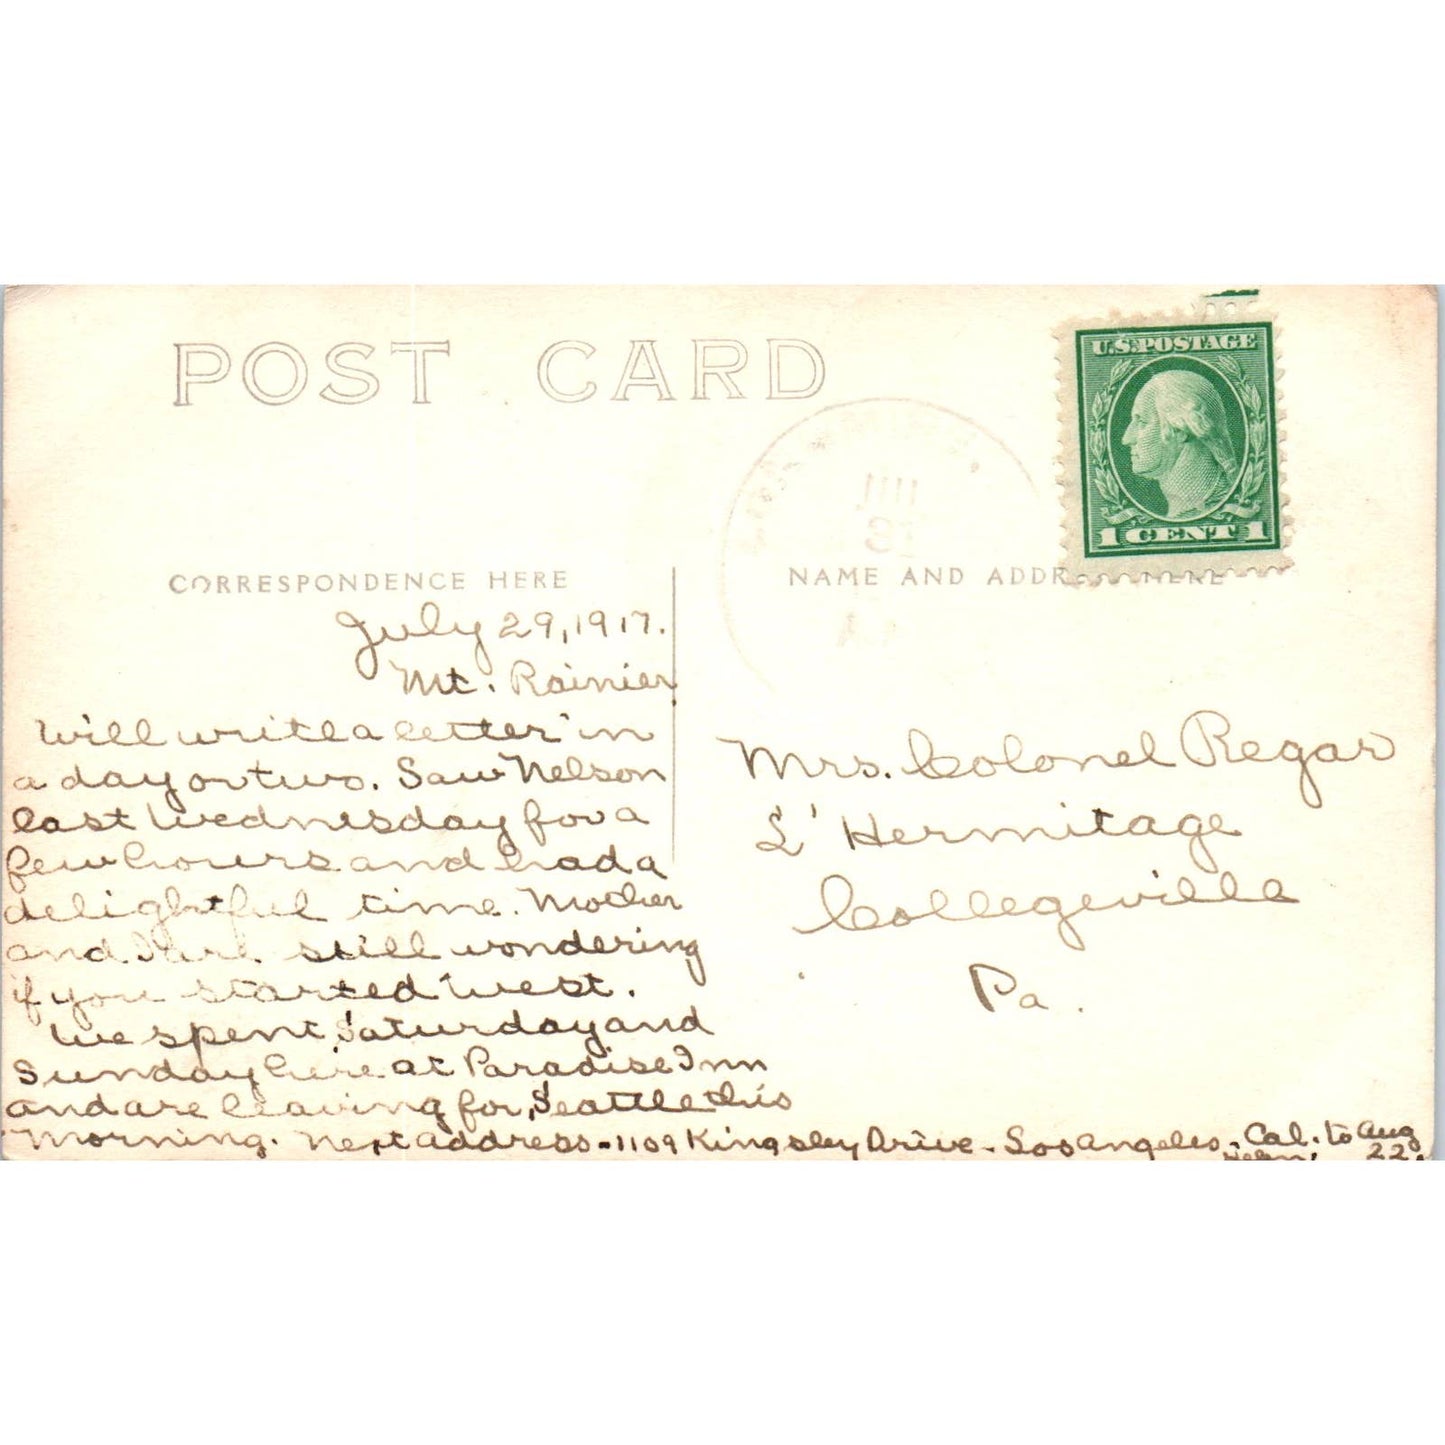 POST CARD
U.S. POSTAGE
1 CENT 1
CORRESPONDENCE HERE
NAME AND ADDR HERE
July 29, 1917.
Mt. Rainier
Will write a letter in
a day or two. Saw Nelson
last Wednesday for a
few hours and had a
delightful time. Mother
and I are still wondering
if you started West.
We spent Saturday and
Sunday here at Paradise Inn
and are leaving for Seattle this
morning. Next address - 1109 Kingsley Drive - Los Angeles, Cal. to Aug
22.
Helen.
Mrs. Colonel Regar
L'Hermitage
Collegeville
Pa.